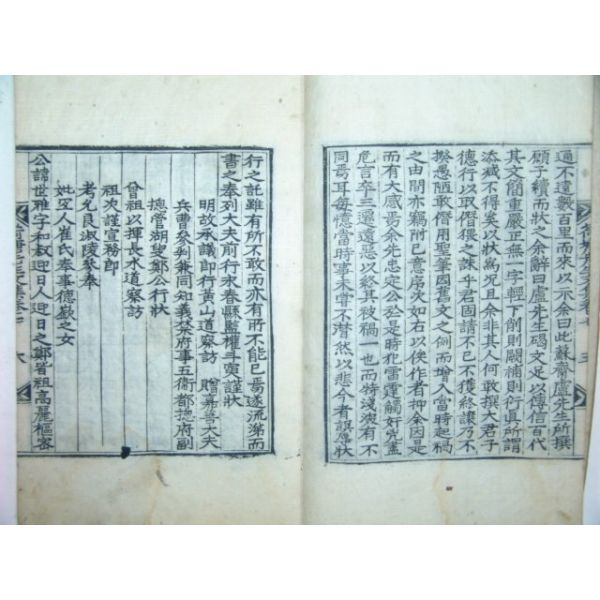 過不遠數百里而來以示余曰此蘇齋盧先生所撰
顧子續而狀之余辭曰盧先生碣文足以傳信百代
其文簡重嚴正無一字輕下削則闕補則衍眞所謂
添减不得矣以狀爲况且余非其人何敢撰大君子
德行以取僣猥之誅乎君固請不已不獲終讓乃不
揆愚陋敢僣用聖筆因舊文之例而增以當時起禍
之由間亦竊附已意序次如右以俟作者抑余因是
而有大感焉余先忠定公於是時
危言卒三
同焉耳每憶當時事未嘗不潸然以悲今者誤辱狀
行之託雖有所不敢而亦有所不能已焉遂流涕而
書之奉列大夫前行永春縣監權斗寅謹狀
明故承議郎行黃山道察訪 贈嘉善大夫
兵曹參判兼同知義禁府事五衛都摠府副
摠管湖叟鄭公行狀
曾祖以揮長水道察訪
祖次謹宣務郎
考允良淑陵參奉
妣空人崔氏奉事德歎之女
公諱世雅字和叔迎日人迎日之鄭皆祖高麗樞密